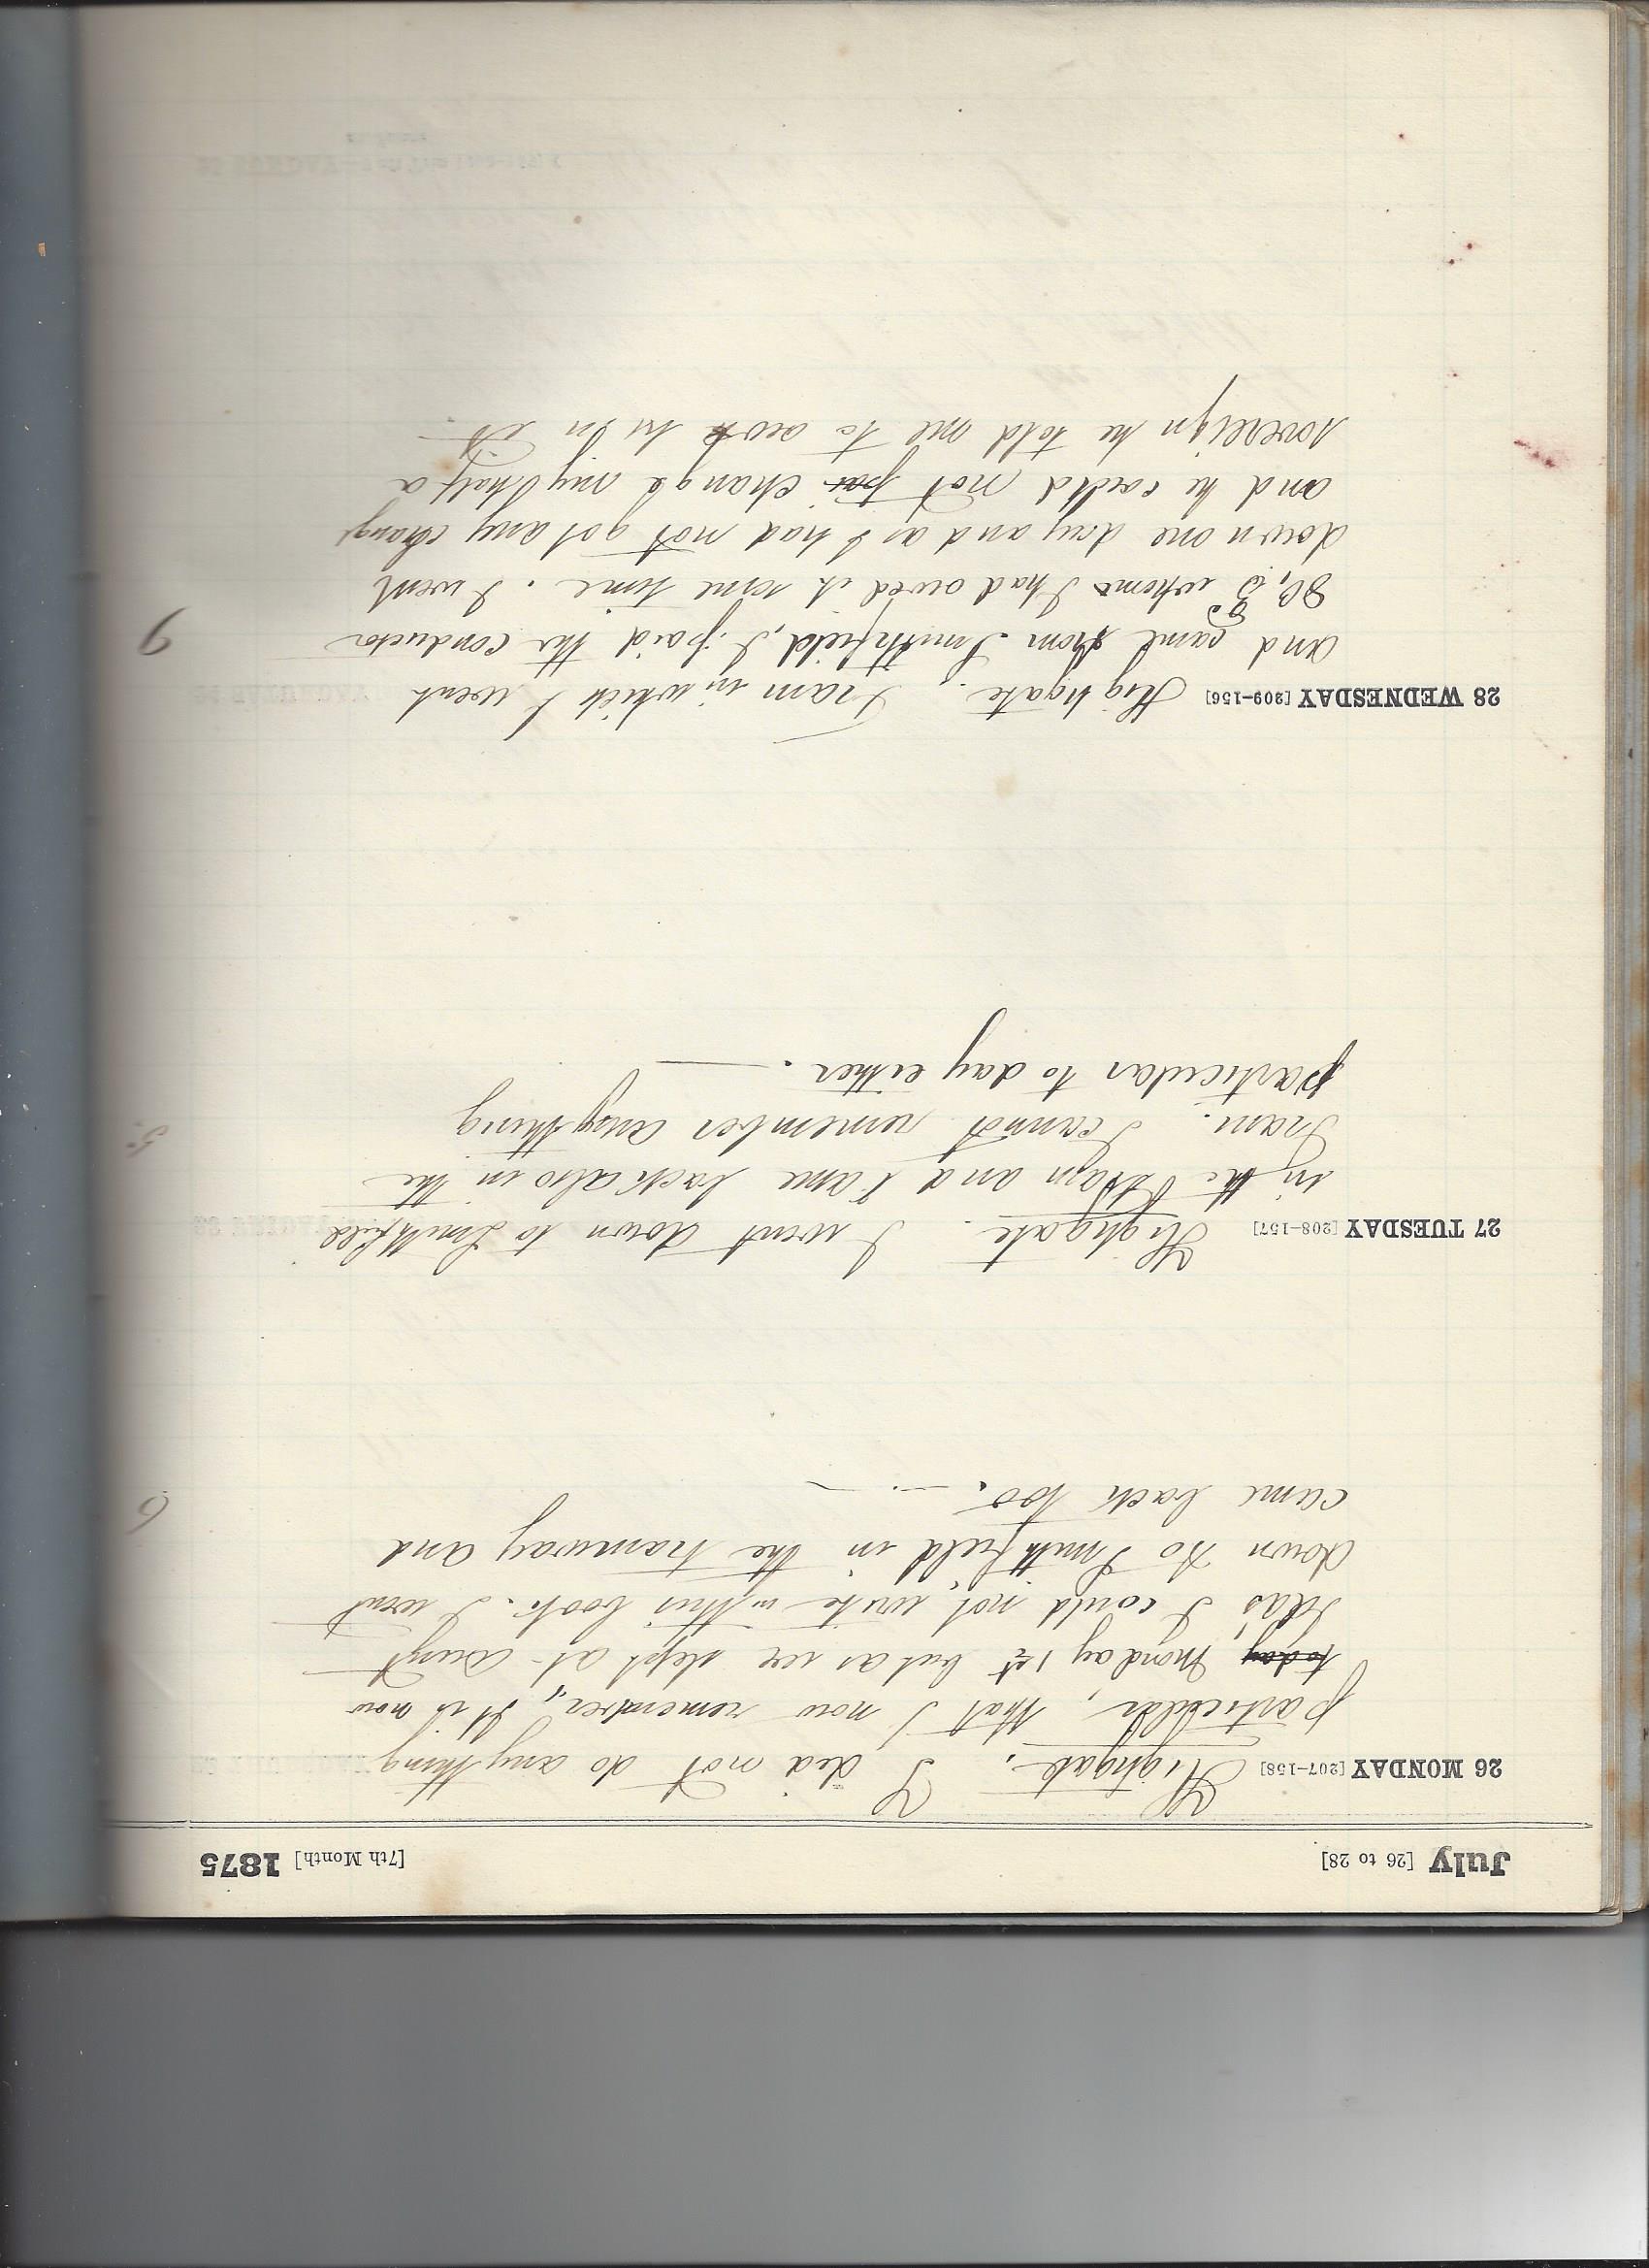 July [26 to 28] [7th Month] 1875
26 MONDAY [207-158] Highgate. I did not do anything
particular, that I now remember, It is now
to day Monday 1st but as we slept at Aunt
I could not write in this book. I went
down to Smithfield in the tramway and
came back too.
6
27 TUESDAY [208-157] Highgate. I went down to Smithfield
in the and came back also in the
Tram. I cannot remember anything
particular to day either.
5
28 WEDNESDAY [209-156] Highgate. Tram in which I went
and came from Smithfield, I paid the conductor
whom I had owed it some time. I went
down one day and as I had not got any change
and he could not change my half a
sovereign he told me to owe it
9